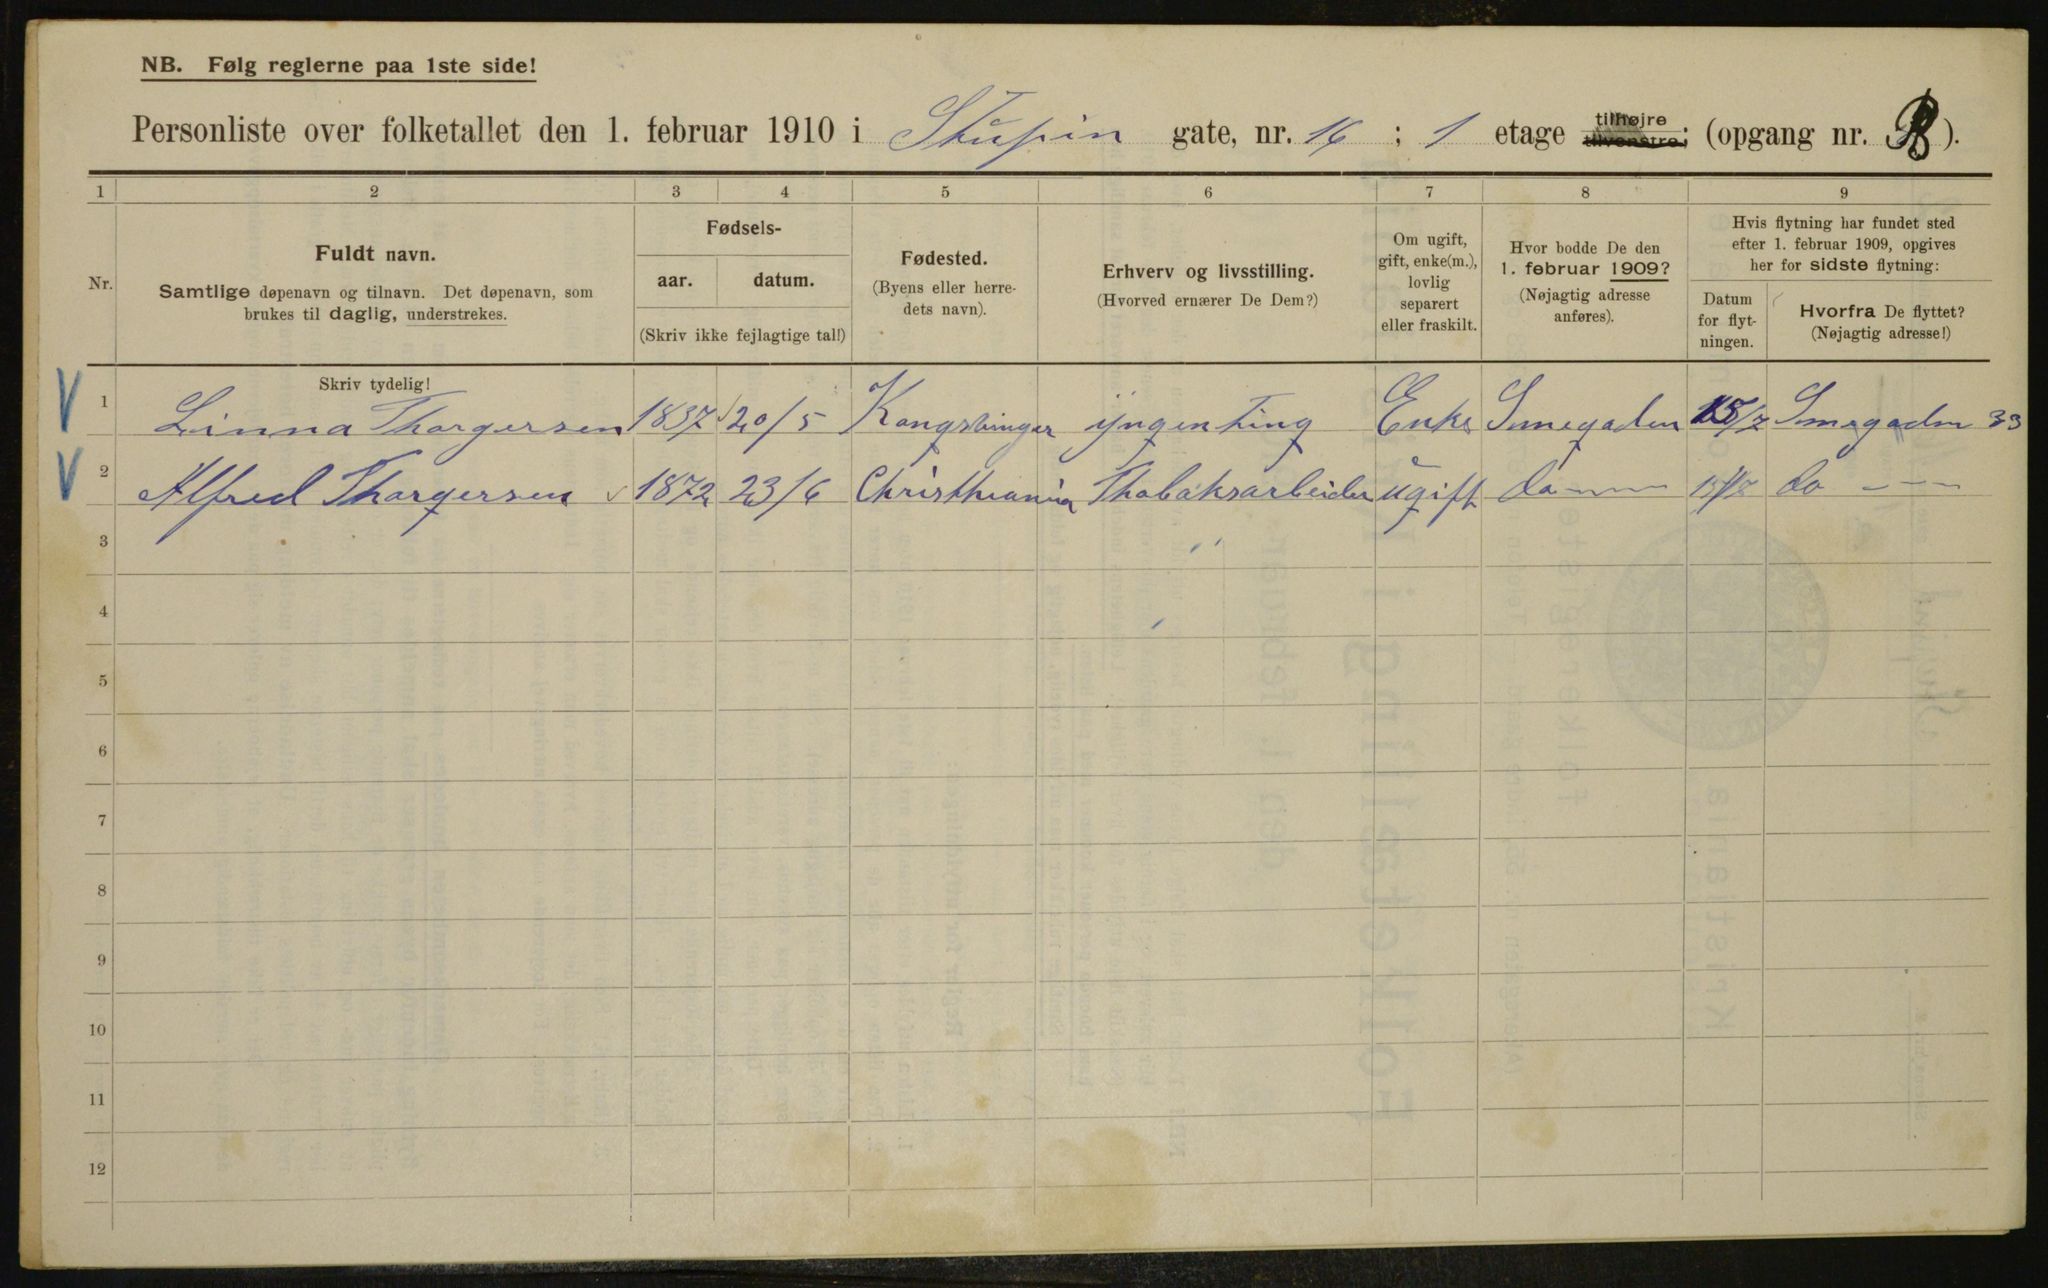 NB. Følg reglerne paa 1ste side!
Personliste over folketallet den 1. februar 1910 i Stupin gate, nr. 16 ; 1 etage tilhøjre tilvenstre; (opgang nr. B).
1 2 3 4 5 6 7 8 9
Nr.
Fuldt navn.
Samtlige døpenavn og tilnavn. Det døpenavn, som
brukes til daglig, understrekes.
Fødsels-
aar. datum.
(Skriv ikke fejlagtige tal!)
Fødested.
(Byens eller herre-
dets navn).
Erhverv og livsstilling.
(Hvorved ernærer De Dem?)
Om ugift,
gift, enke(m.),
lovlig
separert
eller fraskilt.
Hvor bodde De den
1. februar 1909?
(Nøjagtig adresse
anføres).
Hvis flytning har fundet sted
efter 1. februar 1909, opgives
her for sidste flytning:
Datum
for flyt-
ningen.
Hvorfra De flyttet?
(Nøjagtig adresse!)
Skriv tydelig!
1 Linna Thorgersen 1837 20/5 Kongsvinger yngenting Enke Smegaden 15/7 Smegaden 33
2 Alfred Thorgersen 1872 23/6 Christhiania Thobaksarbeider ugift do 15/7 do
3
4
5
6
7
8
9
10
11
12